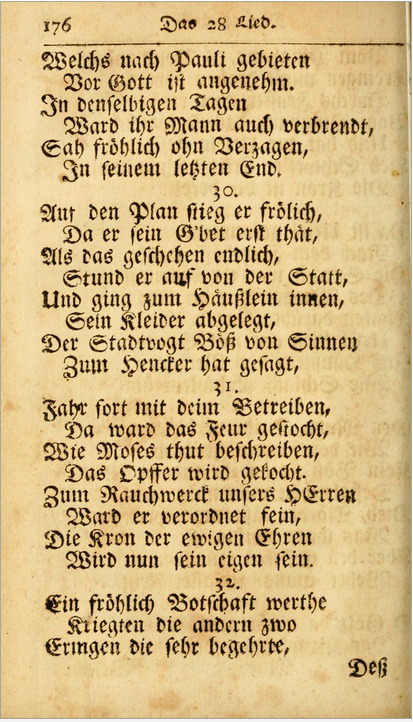 176 Das 28 Lied.
Welchs nach Pauli gebieten
Vor Gott ist angenehm.
In denselbigen Tagen
Ward ihr Mann auch verbrendt,
Sah fröhlich ohn Verzagen,
In seinem letzten End.
30.
Auf den Plan stieg er frölich,
Da er sein G'bet erst thät,
Als das geschehen endlich,
Stund er auf von der Statt,
Und ging zum Häußlein innen,
Sein Kleider abgelegt,
Der Stadtvogt Böß von Sinnen
Zum Hencker hat gesagt,
31.
Fahr fort mit deim Betreiben,
Da ward das Feur gestocht,
Wie Moses thut beschreiben,
Das Opffer wird gekocht.
Zum Rauchwerck unsers HErren
Ward er verordnet fein,
Die Kron der ewigen Ehren
Wird nun sein eigen sein.
32.
Ein fröhlich Botschaft werthe
Kriegten die andern zwo
Eringen die sehr begehrte,
Deß